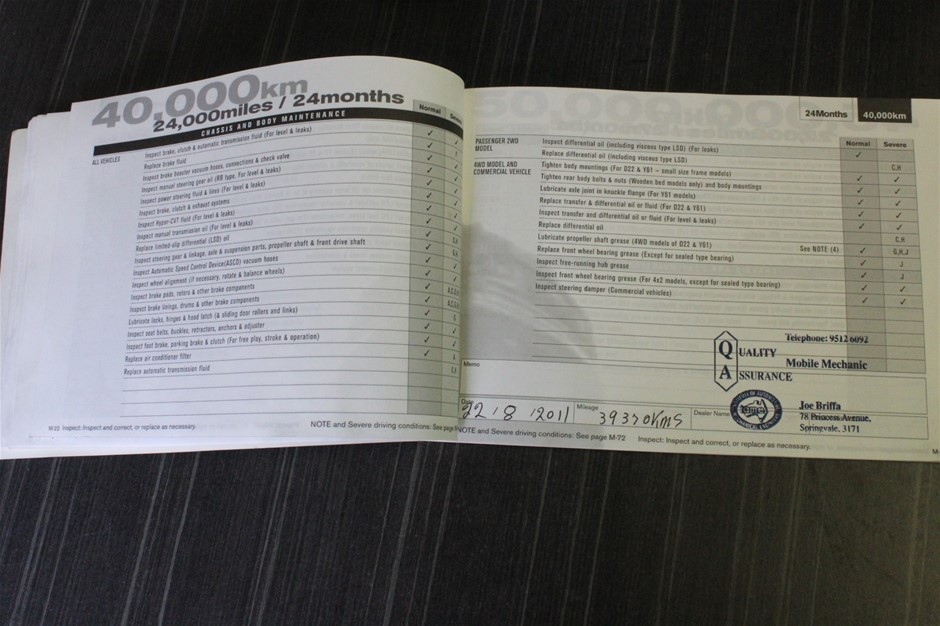 40,000km
24,000miles / 24months
CHASSIS AND BODY MAINTENANCE
Normal
ALL VEHICLES
Inspect brake, clutch & automatic transmission fluid (For level & leaks)
Replace brake fluid
Inspect brake booster vacuum hoses, connections & check valve
Inspect manual steering gear oil (RB type, For level & leaks)
Inspect power steering fluid & lines (For level & leaks)
Inspect brake, clutch & exhaust systems
Inspect Hyper-CVT fluid (For level & leaks)
Inspect manual transmission oil (For level & leaks)
Replace limited-slip differential (LSD) oil
Inspect steering gear & linkage, axle & suspension parts, propeller shaft & front drive shaft
Inspect Automatic Speed Control Device(ASCD) vacuum hoses
Inspect wheel alignment (if necessary, rotate & balance wheels)
Inspect brake pads, rotors & other brake components
Inspect brake linings, drums & other brake components
Lubricate locks, hinges & hood latch (& sliding door rollers and links)
Inspect seat belts, buckles, retractors, anchors & adjuster
Inspect foot brake, parking brake & clutch (For free play, stroke & operation)
Replace air conditioner filter
Replace automatic transmission fluid
Inspect: Inspect and correct, or replace as necessary.
NOTE and Severe driving conditions: See page
24Months 40,000km
Normal Severe
PASSENGER 2WD
MODEL
Inspect differential oil (including viscous type LSD) (For leaks)
Replace differential oil (including viscous type LSD)
C,H
4WD MODEL AND
COMMERCIAL VEHICLE
Tighten body mountings (For D22 & Y61 – small size frame models)
Tighten rear body bolts & nuts (Wooden bed models only) and body mountings
Lubricate axle joint in knuckle flange (For Y61 models)
Replace transfer & differential oil or fluid (For D22 & Y61)
Inspect transfer and differential oil or fluid (For level & leaks)
Replace differential oil
C,H
Lubricate propeller shaft grease (4WD models of D22 & Y61) See NOTE (4)
G,H,J
Replace front wheel bearing grease (Except for sealed type bearing)
J
Inspect free-running hub grease
J
Inspect front wheel bearing grease (For 4x2 models, except for sealed type bearing)
Inspect steering damper (Commercial vehicles)
Memo
QUALITY
ASSURANCE
Telephone: 9512 6092
Mobile Mechanic
Joe Briffa
78 Princess Avenue,
Springvale, 3171
Date
22 / 8 / 2011
Mileage
39370KMS
Dealer Name
NOTE and Severe driving conditions: See page M-72
Inspect: Inspect and correct, or replace as necessary.